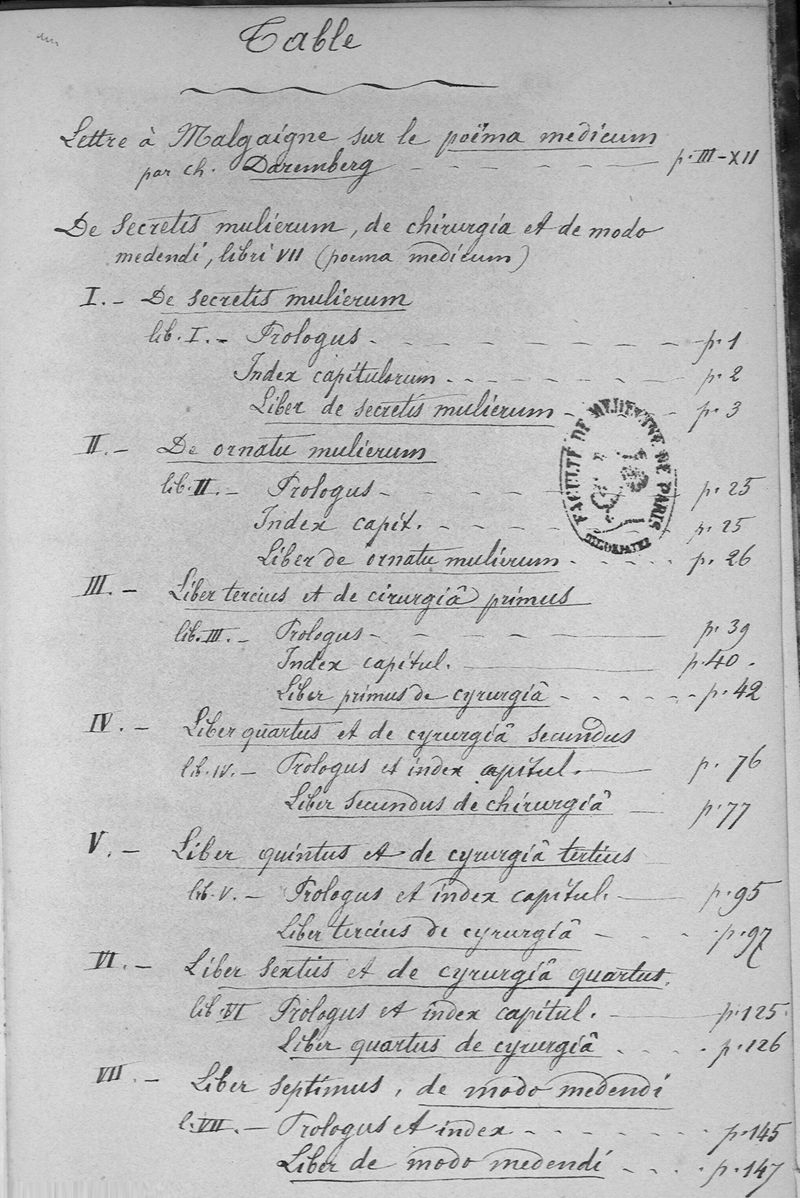 Table
Lettre à Malgaigne sur le poëma medicum
par ch. Daremberg p. III-XII
De secretis mulierum, de chirurgia et de modo
medendi, libri VII (poema medicum)
I. - De secretis mulierum
lib. I. - Prologus - p. 1
Index capitulorum. p. 2
Liber de secretis mulierum p. 3
II. - De ornatu mulierum
lib. II. - Prologus - p. 25
Index capit. p. 25
Liber de ornatu mulierum p. 26
III. - Liber tercius et de cirurgiâ primus
lib. III. - Prologus - p. 39
Index capitul. p. 40.
Liber primus de cyrurgiâ p. 42
IV. - Liber quartus et de cyrurgiâ secundus
lib. IV. - Prologus et index capitul. p. 76
Liber secundus de chirurgiâ p. 77
V. - Liber quintus et de cyrurgiâ tertius
lib. V. - Prologus et index capitul. p. 95
Liber tercius de cyrurgiâ p. 97
VI. - Liber sextus et de cyrurgiâ quartus.
lib. VI Prologus et index capitul. p. 125.
Liber quartus de cyrurgiâ p. 126
VII. - Liber septimus, de modo medendi
l. VII. - Prologus et index p. 145
Liber de modo medendi p. 147
FACULTÉ DE MEDECINE DE PARIS